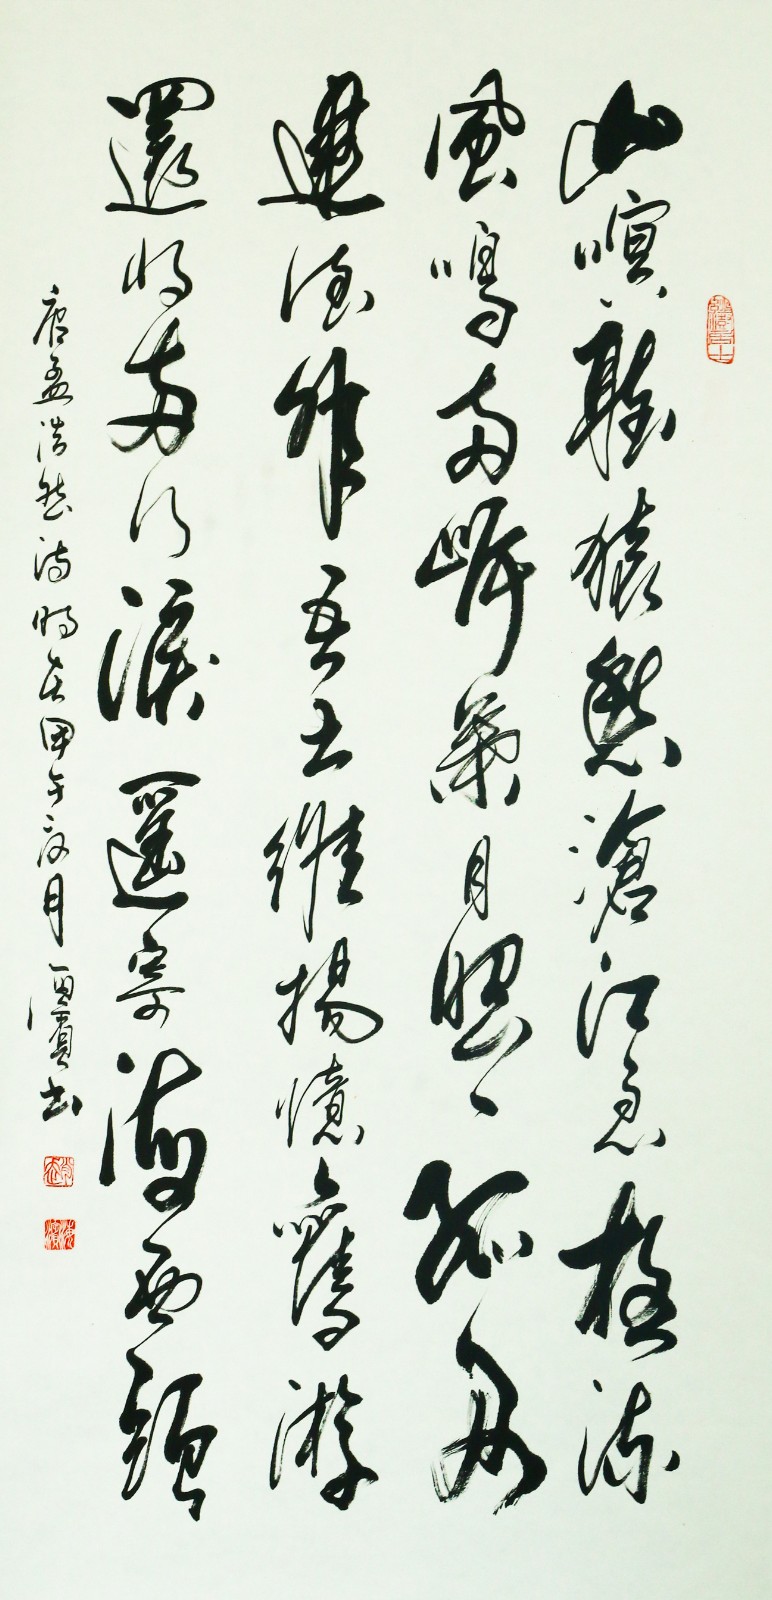 山暝聽猿愁滄江急流
風鳴兩岸葉月照一孤舟
建德非吾土維揚憶舊游
還將兩行淚遙寄海西頭
唐孟浩然詩時在甲午月書